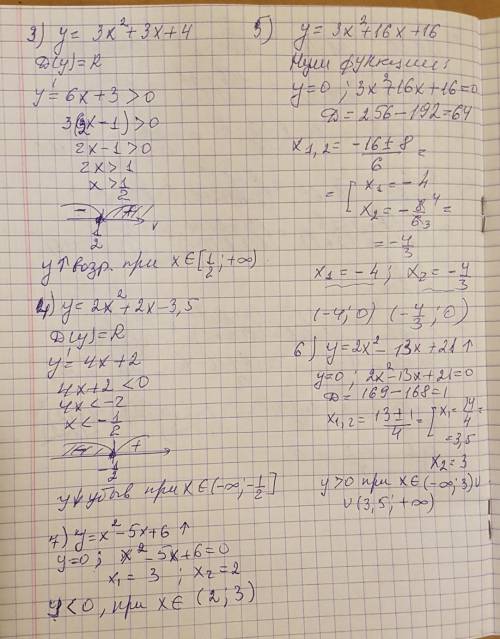 3) y = 3x² + 3x + 4
D(y) = R
y' = 6x + 3 > 0
3(2x - 1) > 0
2x - 1 > 0
2x > 1
x > 1/2
- +
1/2
y ↑ возр. при x ∈ [1/2; +∞)
4) y = 2x² + 2x - 3,5
D(y) = R
y' = 4x + 2
4x + 2 < 0
4x < -2
x < -1/2
- +
-1/2
y ↓ убыв при x ∈ (-∞; -1/2]
7) y = x² - 5x + 6 ↑
y = 0; x² - 5x + 6 = 0
x₁ = 3; x₂ = 2
y < 0, при x ∈ (2; 3)
5) y = 3x² + 16x + 16
Нули функции:
y = 0; 3x² + 16x + 16 = 0
D = 256 - 192 = 64
x₁,₂ = (-16 ± 8)/6 =
= [ x₁ = -4
x₂ = -8/6 4 3 =
= -4/3
x₁ = -4; x₂ = -4/3
(-4; 0) (-4/3; 0)
6) y = 2x² - 13x + 21 ↑
y = 0; 2x² - 13x + 21 = 0
D = 169 - 168 = 1
x₁,₂ = (13 ± 1)/4 = [ x₁ = 14/4 =
= 3,5
x₂ = 3
y > 0 при x ∈ (-∞; 3) ∪
∪ (3,5; +∞)